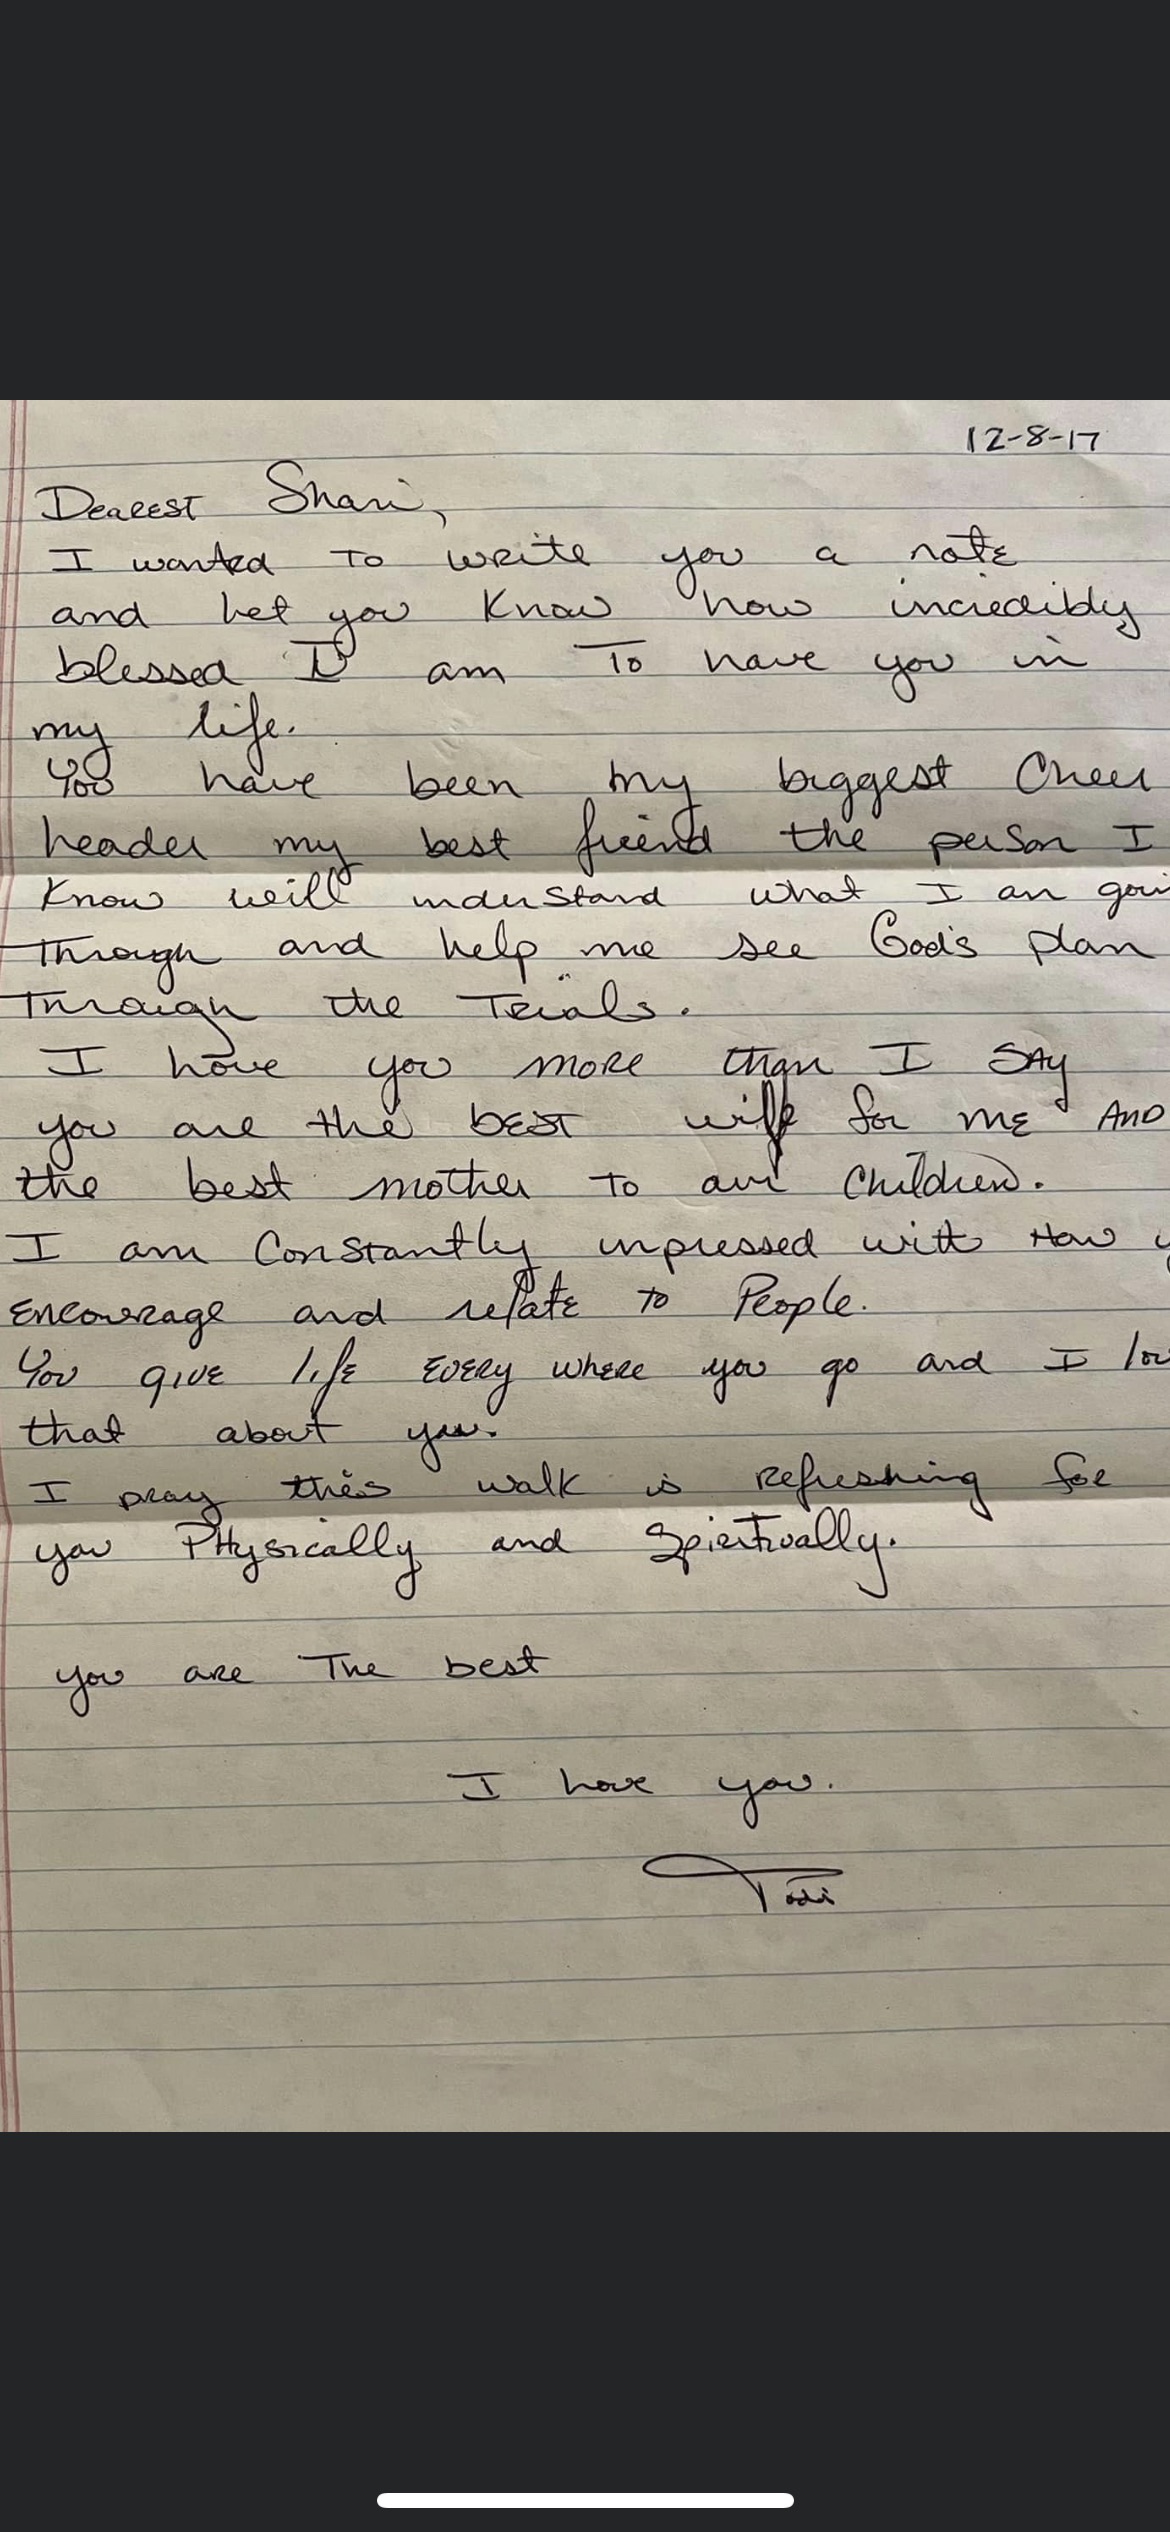 12-8-17
Dearest Shari,
I wanted To write you a note
and let you know how incredibly
blessed I am To have you in
my life.
You have been my biggest Cheer
leader my best friend the person I
know will understand what I am goin
Through and help me see God's plan
Through the Trials.
I love you more than I SAY
you are the best wife for me AND
the best mother To our Children.
I am Constantly impressed with How y
Encourage and relate To People.
You give life Every where you go and I lov
that about you.
I pray this walk is Refreshing for
you PHysically and Spiritually.
you are The best
I love you.